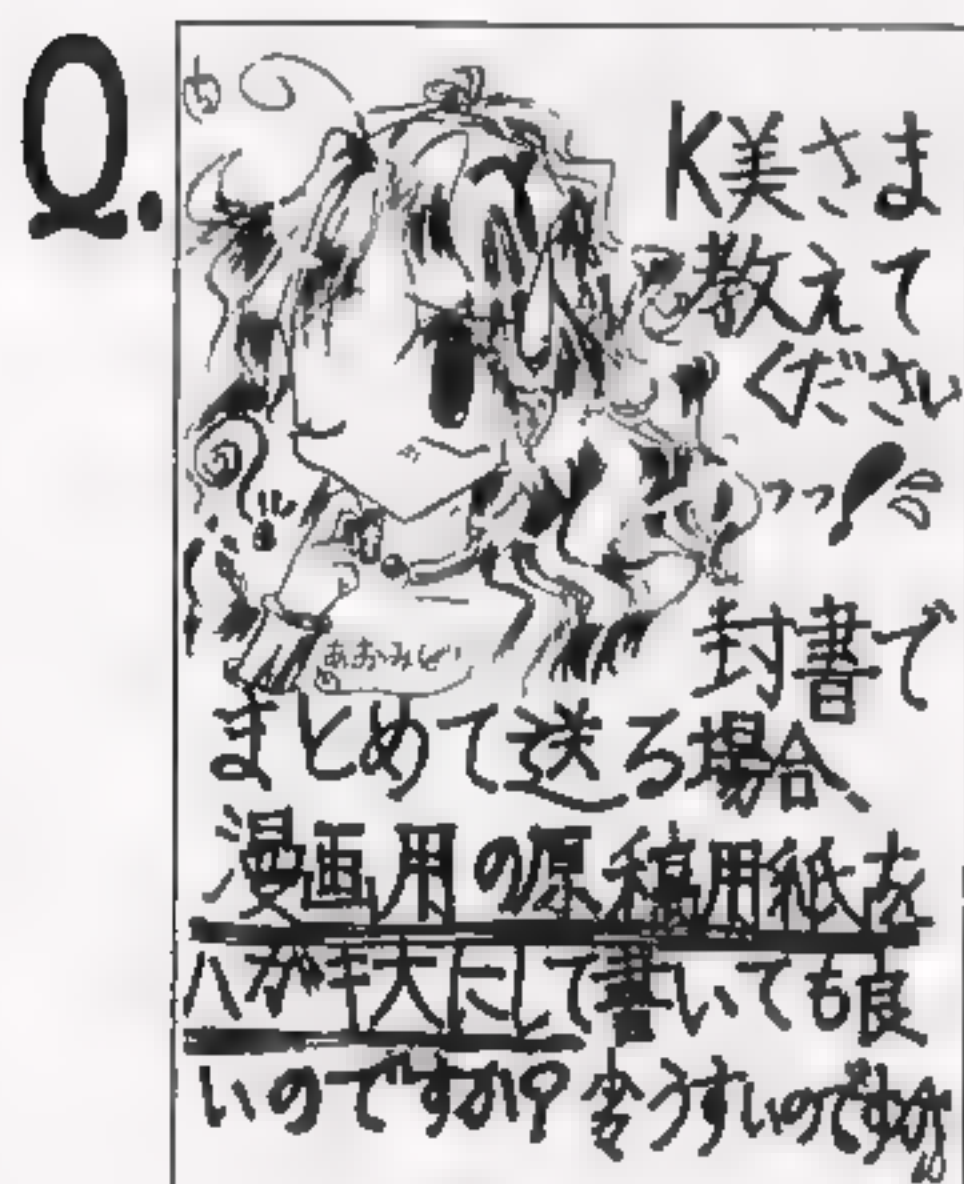 Q.
K美さま
教えて
ください
っっ!
あおみどり
封書で
まとめて送る場合、
漫画用の原稿用紙を
ハガキ大にして書いても良
いのですか?
うすいのですが